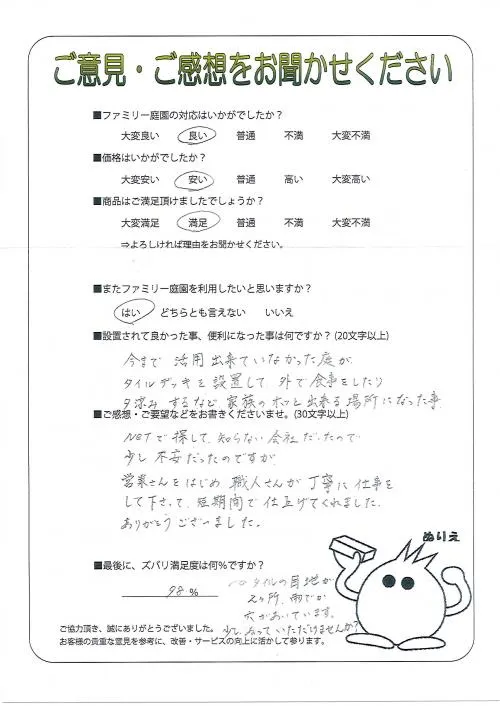 ご意見・ご感想をお聞かせください
■ファミリー庭園の対応はいかがでしたか？
大変良い 良い 普通 不満 大変不満
■価格はいかがでしたか？
大変安い 安い 普通 高い 大変高い
■商品はご満足頂けましたでしょうか？
大変満足 満足 普通 不満 大変不満
⇒よろしければ理由をお聞かせください。
■またファミリー庭園を利用したいと思いますか？
はい どちらとも言えない いいえ
■設置されて良かった事、便利になった事は何ですか？(20文字以上)
今まで 活用出来ていなかった庭が
タイルデッキを設置して、外で食事をしたり
夕涼みするなど、家族のホッと出来る場所になった事
■ご感想・ご要望などをお書きくださいませ。(30文字以上)
NETで探して、知らない会社だったので
少し不安だったのですが
営業さんをはじめ、職人さんが丁寧に仕事を
して下さって、短期間で仕上げてくれました。
ありがとうございました。
ぬりえ
■最後に、ズバリ満足度は何％ですか？
98 %
タイルの目地が
2ヶ所、雨でか
穴があいています。
いただけませんか?
ご協力頂き、誠にありがとうございました。
お客様の貴重な意見を参考に、改善・サービスの向上に活かして参ります。